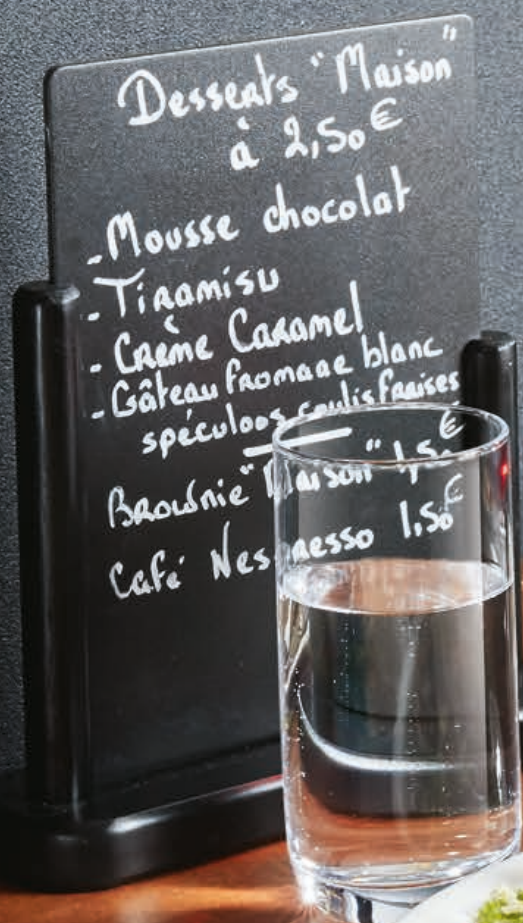 Desserts "Maison"
à 2,50€
- Mousse chocolat
- Tiramisu
- Crème Caramel
- Gâteau fromage blanc
spéculoos coulis fraises
Brownie "Maison" 1,50€
Café Nespresso 1,50€